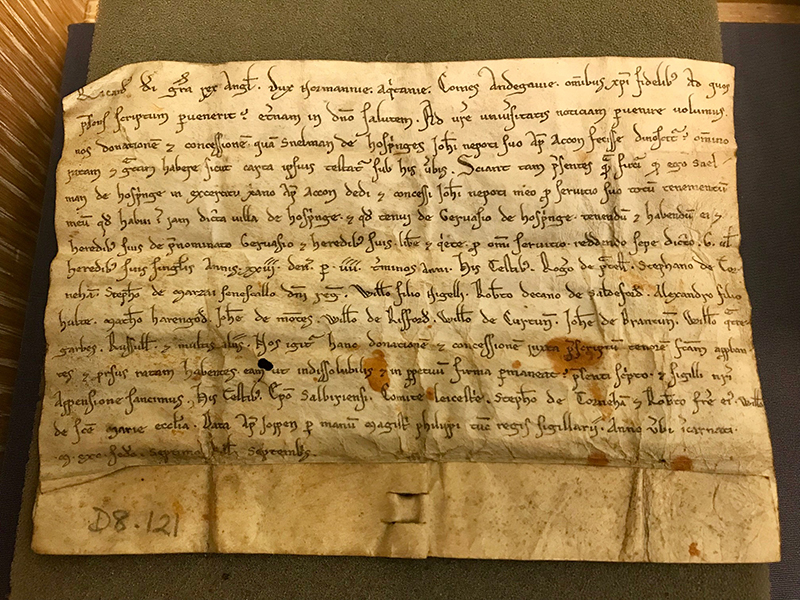 Ricard' di gra rex Angl'. Dux Normannie. Aqitanie. Comes Andegavie. omnibus xpi fidelib' Ad quos
psens scriptum pervenerit? etnam in dno salutem. Ad vre univsitatis noticiam pvenire volumus.
nos donatione & concessione. qua Snelman de Hospnges Johi nepoti suo Ap Accon fecisse dinoscit? omnino
ratam & gtam habere sicut carta ipsius testat sub his vbis. Sciant tam psentes q futi q ego Snel
man de hospnge in excercitu xano Ap Accon dedi & concessi Johi nepoti meo p servitio suo totu tenementu
meu qd habui i jam dicta villa de hospnge. & qd tenui de Gervasio de hospnge. tenendu & habendu ei &
heredib' suis de pnominato Gervasio & heredib' suis. libe & qete. p omi servitio. reddendo sepe dicto .G. vl
heredib' suis singlis Annis xxiii. den. p .iiii. tminos Anni. His testib'. Rogo de ptell. Stephano de Tor
neha. Stepho de marzai senescallo dni reg. Willo filio Nigelli. Robto decano de Saldeford. Alexandro filio
hub'te. Matho harengod. Johe de montes. Willo de Rifford. Willo de Curtun. Johe de brantun. Willo qtre
garbes. Russell. & multis aliis. Nos igit hanc donatione & concessione juxta pscriptu tenore fcam appban
tes & prsus ratam habentes. eam ut indissolubilis & in ppetuu firma pmaneat. psenti scpto. & sigilli nri
Appensione sancimus. His testib'. Epo Salbiriensi. Comite leicestr'. Stepho de Torneha & Robto fre ei. Willo
de sce marie ecclia. Data Ap Joppen p manu magist philippi tuc regis sigillarii. Anno vbi icarnati.
m. c. xc. ii. septimo kl. Septembs.
D8.121